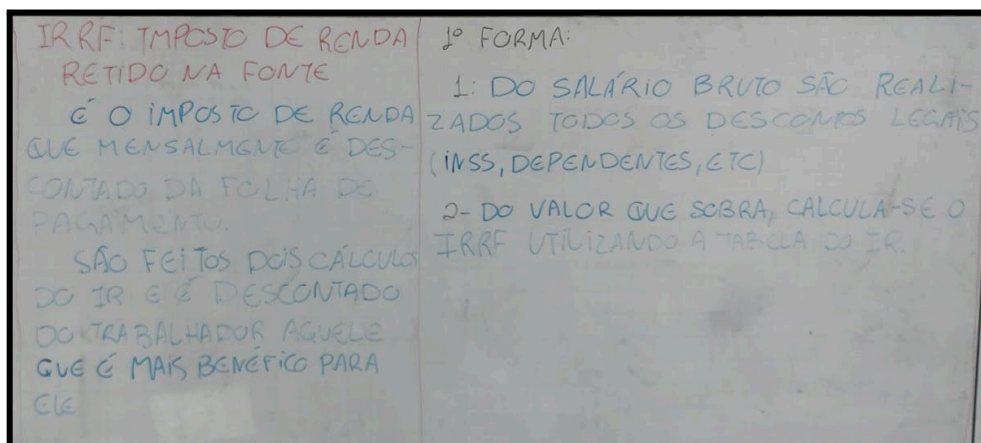 IRRF: IMPOSTO DE RENDA
RETIDO NA FONTE
É O IMPOSTO DE RENDA
QUE MENSALMENTE É DES-
CONTADO DA FOLHA DE
PAGAMENTO.
SÃO FEITOS DOIS CÁLCULOS
DO IR E É DESCONTADO
DO TRABALHADOR AQUELE
QUE É MAIS BENÉFICO PARA
ELE
1º FORMA:
1: DO SALÁRIO BRUTO SÃO REALI-
ZADOS TODOS OS DESCONTOS LEGAIS
(INSS, DEPENDENTES, ETC)
2- DO VALOR QUE SOBRA, CALCULA-SE O
IRRF UTILIZANDO A TABELA DO IR.